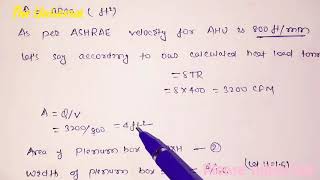 A = area (ft²)
As per ASHRAE velocity for AHU is 800 ft/min
Let's say according to our calculated heat load tonn
= 8TR
= 8×400 = 3200 CFM
A = Q/V
= 3200/800 = 4 ft²
Area of plenum box = W×H — ②
Width of plenum box (let H=1.5)